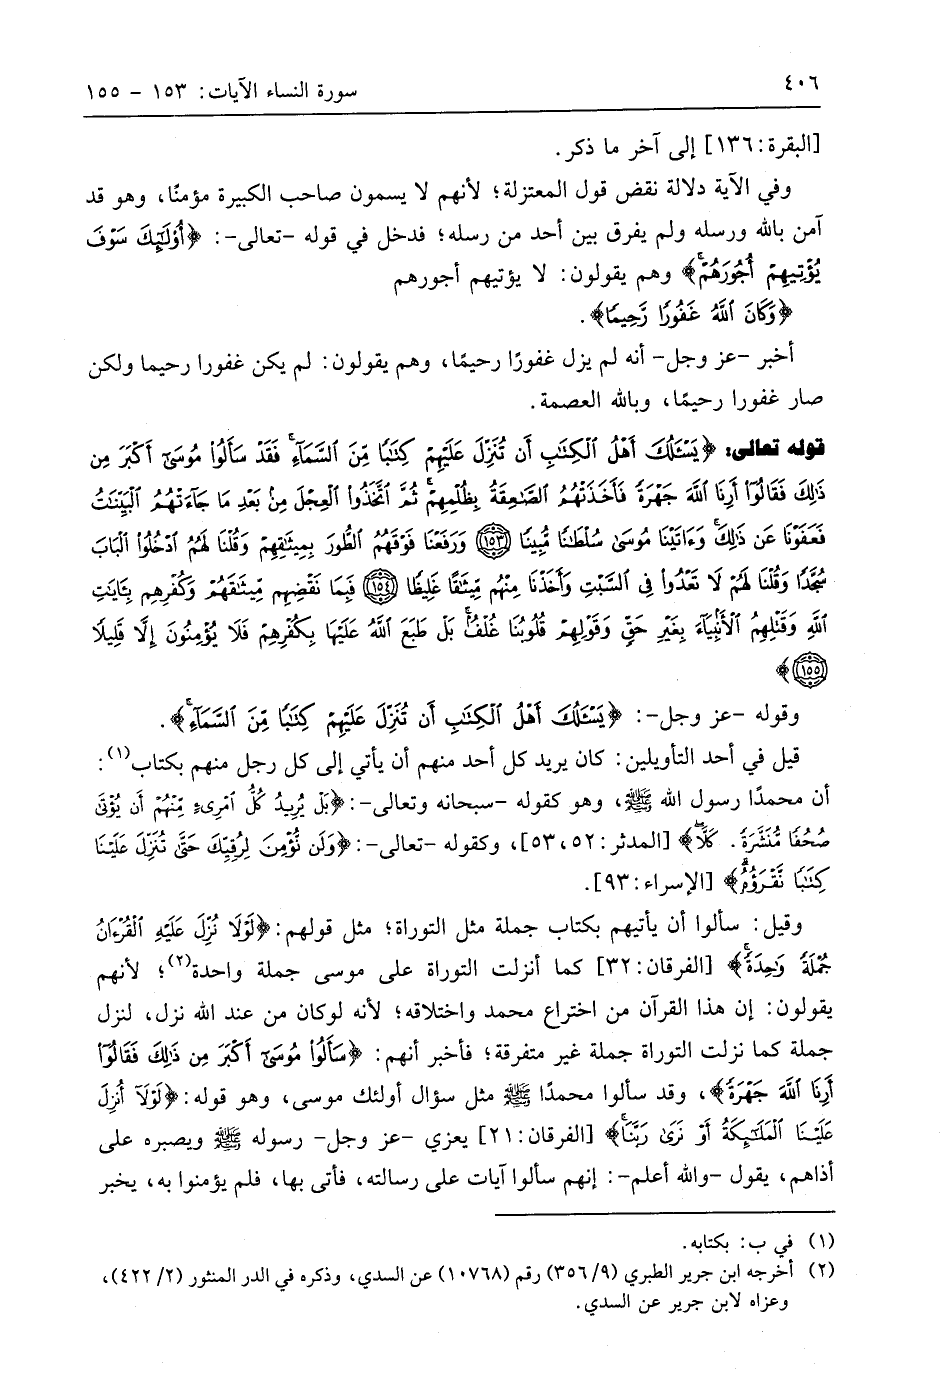 ٤٠٦
سورة النساء الآيات: ١٥٣ - ١٥٥
[البقرة: ١٣٦] إلى آخر ما ذكر.
وفي الآية دلالة نقض قول المعتزلة؛ لأنهم لا يسمون صاحب الكبيرة مؤمنًا، وهو قد
آمن بالله ورسله ولم يفرق بين أحد من رسله؛ فدخل في قوله -تعالى-: ﴿أُوْلَٰٓئِكَ سَوْفَ
يُؤْتِيهِمْ أُجُورَهُمْۚ﴾ وهم يقولون: لا يؤتيهم أجورهم
﴿وَكَانَ ٱللَّهُ غَفُورًا رَّحِيمًا﴾.
أخبر -عز وجل- أنه لم يزل غفورًا رحيمًا، وهم يقولون: لم يكن غفورا رحيما ولكن
صار غفورا رحيمًا، وبالله العصمة.
قوله تعالى: ﴿يَسْـَٔلُكَ أَهْلُ ٱلْكِتَٰبِ أَن تُنَزِّلَ عَلَيْهِمْ كِتَٰبًا مِّنَ ٱلسَّمَآءِۚ فَقَدْ سَأَلُوا۟ مُوسَىٰٓ أَكْبَرَ مِن
ذَٰلِكَ فَقَالُوٓا۟ أَرِنَا ٱللَّهَ جَهْرَةً فَأَخَذَتْهُمُ ٱلصَّٰعِقَةُ بِظُلْمِهِمْۚ ثُمَّ ٱتَّخَذُوا۟ ٱلْعِجْلَ مِنۢ بَعْدِ مَا جَآءَتْهُمُ ٱلْبَيِّنَٰتُ
فَعَفَوْنَا عَن ذَٰلِكَۚ وَءَاتَيْنَا مُوسَىٰ سُلْطَٰنًا مُّبِينًا ﴿١٥٣﴾ وَرَفَعْنَا فَوْقَهُمُ ٱلطُّورَ بِمِيثَٰقِهِمْ وَقُلْنَا لَهُمُ ٱدْخُلُوا۟ ٱلْبَابَ
سُجَّدًا وَقُلْنَا لَهُمْ لَا تَعْدُوا۟ فِى ٱلسَّبْتِ وَأَخَذْنَا مِنْهُم مِّيثَٰقًا غَلِيظًا ﴿١٥٤﴾ فَبِمَا نَقْضِهِم مِّيثَٰقَهُمْ وَكُفْرِهِم بِـَٔايَٰتِ
ٱللَّهِ وَقَتْلِهِمُ ٱلْأَنۢبِيَآءَ بِغَيْرِ حَقٍّ وَقَوْلِهِمْ قُلُوبُنَا غُلْفٌۢۚ بَلْ طَبَعَ ٱللَّهُ عَلَيْهَا بِكُفْرِهِمْ فَلَا يُؤْمِنُونَ إِلَّا قَلِيلًا
﴿١٥٥﴾﴾
وقوله -عز وجل-: ﴿يَسْـَٔلُكَ أَهْلُ ٱلْكِتَٰبِ أَن تُنَزِّلَ عَلَيْهِمْ كِتَٰبًا مِّنَ ٱلسَّمَآءِۚ﴾.
قيل في أحد التأويلين: كان يريد كل أحد منهم أن يأتي إلى كل رجل منهم بكتاب(١):
أن محمدًا رسول الله ﷺ، وهو كقوله -سبحانه وتعالى-: ﴿بَلْ يُرِيدُ كُلُّ ٱمْرِئٍ مِّنْهُمْ أَن يُؤْتَىٰ
صُحُفًا مُّنَشَّرَةً . كَلَّاۖ﴾ [المدثر: ٥٢، ٥٣]، وكقوله -تعالى-: ﴿وَلَن نُّؤْمِنَ لِرُقِيِّكَ حَتَّىٰ تُنَزِّلَ عَلَيْنَا
كِتَٰبًا نَّقْرَؤُهُۥۗ﴾ [الإسراء: ٩٣].
وقيل: سألوا أن يأتيهم بكتاب جملة مثل التوراة؛ مثل قولهم: ﴿لَوْلَا نُزِّلَ عَلَيْهِ ٱلْقُرْءَانُ
جُمْلَةً وَٰحِدَةًۚ﴾ [الفرقان: ٣٢] كما أنزلت التوراة على موسى جملة واحدة(٢)؛ لأنهم
يقولون: إن هذا القرآن من اختراع محمد واختلاقه؛ لأنه لوكان من عند الله نزل، لنزل
جملة كما نزلت التوراة جملة غير متفرقة؛ فأخبر أنهم: ﴿سَأَلُوا۟ مُوسَىٰٓ أَكْبَرَ مِن ذَٰلِكَ فَقَالُوٓا۟
أَرِنَا ٱللَّهَ جَهْرَةً﴾، وقد سألوا محمدًا ﷺ مثل سؤال أولئك موسى، وهو قوله: ﴿لَوْلَآ أُنزِلَ
عَلَيْنَا ٱلْمَلَٰٓئِكَةُ أَوْ نَرَىٰ رَبَّنَاۗ﴾ [الفرقان: ٢١] يعزي -عز وجل- رسوله ﷺ ويصبره على
أذاهم، يقول -والله أعلم-: إنهم سألوا آيات على رسالته، فأتى بها، فلم يؤمنوا به، يخبر
(١) في ب: بكتابه.
(٢) أخرجه ابن جرير الطبري (٩/ ٣٥٦) رقم (١٠٧٦٨) عن السدي، وذكره في الدر المنثور (٢/ ٤٢٢)،
وعزاه لابن جرير عن السدي.